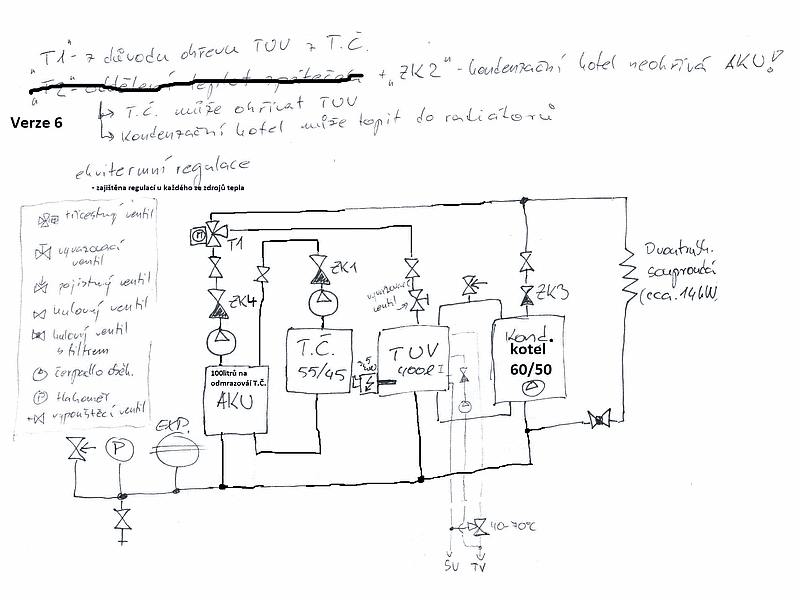 "T1" - z důvodu ohřevu TUV z T.Č.
"T2" - oddělení teplot zpátečky + "ZK2" - kondenzační kotel neohřívá AKU!
↳ T.Č. může ohřívat TUV
Verze 6
↳ Kondenzační kotel může topit do radiátorů
ekvitermní regulace
• zajištěna regulací u každého ze zdrojů tepla
třícestný ventil
vyvažovací
ventil
pojistný ventil
kulový ventil
kulový ventil
s filtrem
čerpadlo oběh.
tlakoměr
vypouštěcí ventil
M
T1
ZK1
ZK4
ZK3
vyvažovací
ventil
Dvoutrub.
souproudá
(cca. 14kW)
T.Č.
55/45
TUV
400l
Kond.
kotel
60/50
100litrů na
odmrazováí T.Č.
AKU
EXP.
P
40-70°C
SV
TV